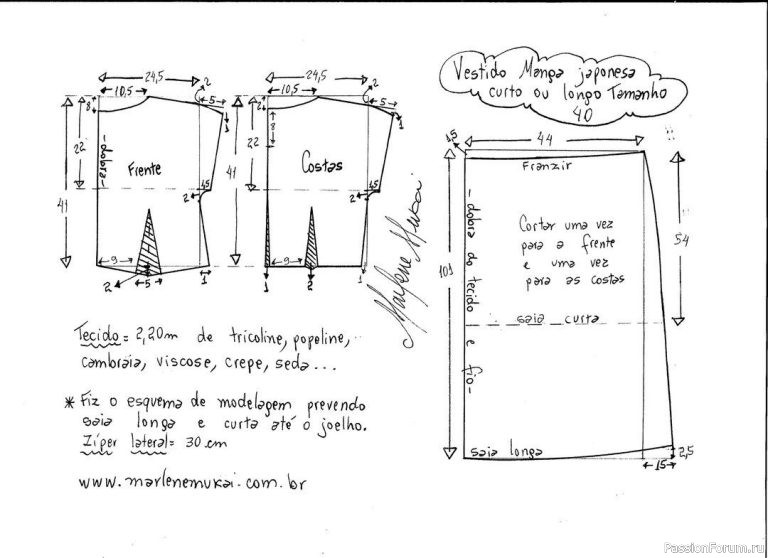 Vestido Manga japonesa
curto ou longo Tamanho
40
24,5
2
10,5
5
8
1
22
41
dobra
Frente
4,5
2
9
5
2
1
24,5
2
10,5
5
2
8
1
22
41
Costas
4,5
2
9
1
2
1
Marlene Mukai
1,5
44
Franzir
101
dobra do tecido e fio
Cortar uma vez
para a frente
e uma vez
para as costas
54
saia curta
saia longa
15
2,5
Tecido = 2,20m de tricoline, popeline,
cambraia, viscose, crepe, seda...
* Fiz o esquema de modelagem prevendo
saia longa e curta até o joelho.
Zíper lateral = 30 cm
www.marlenemukai.com.br
PassionForum.ru